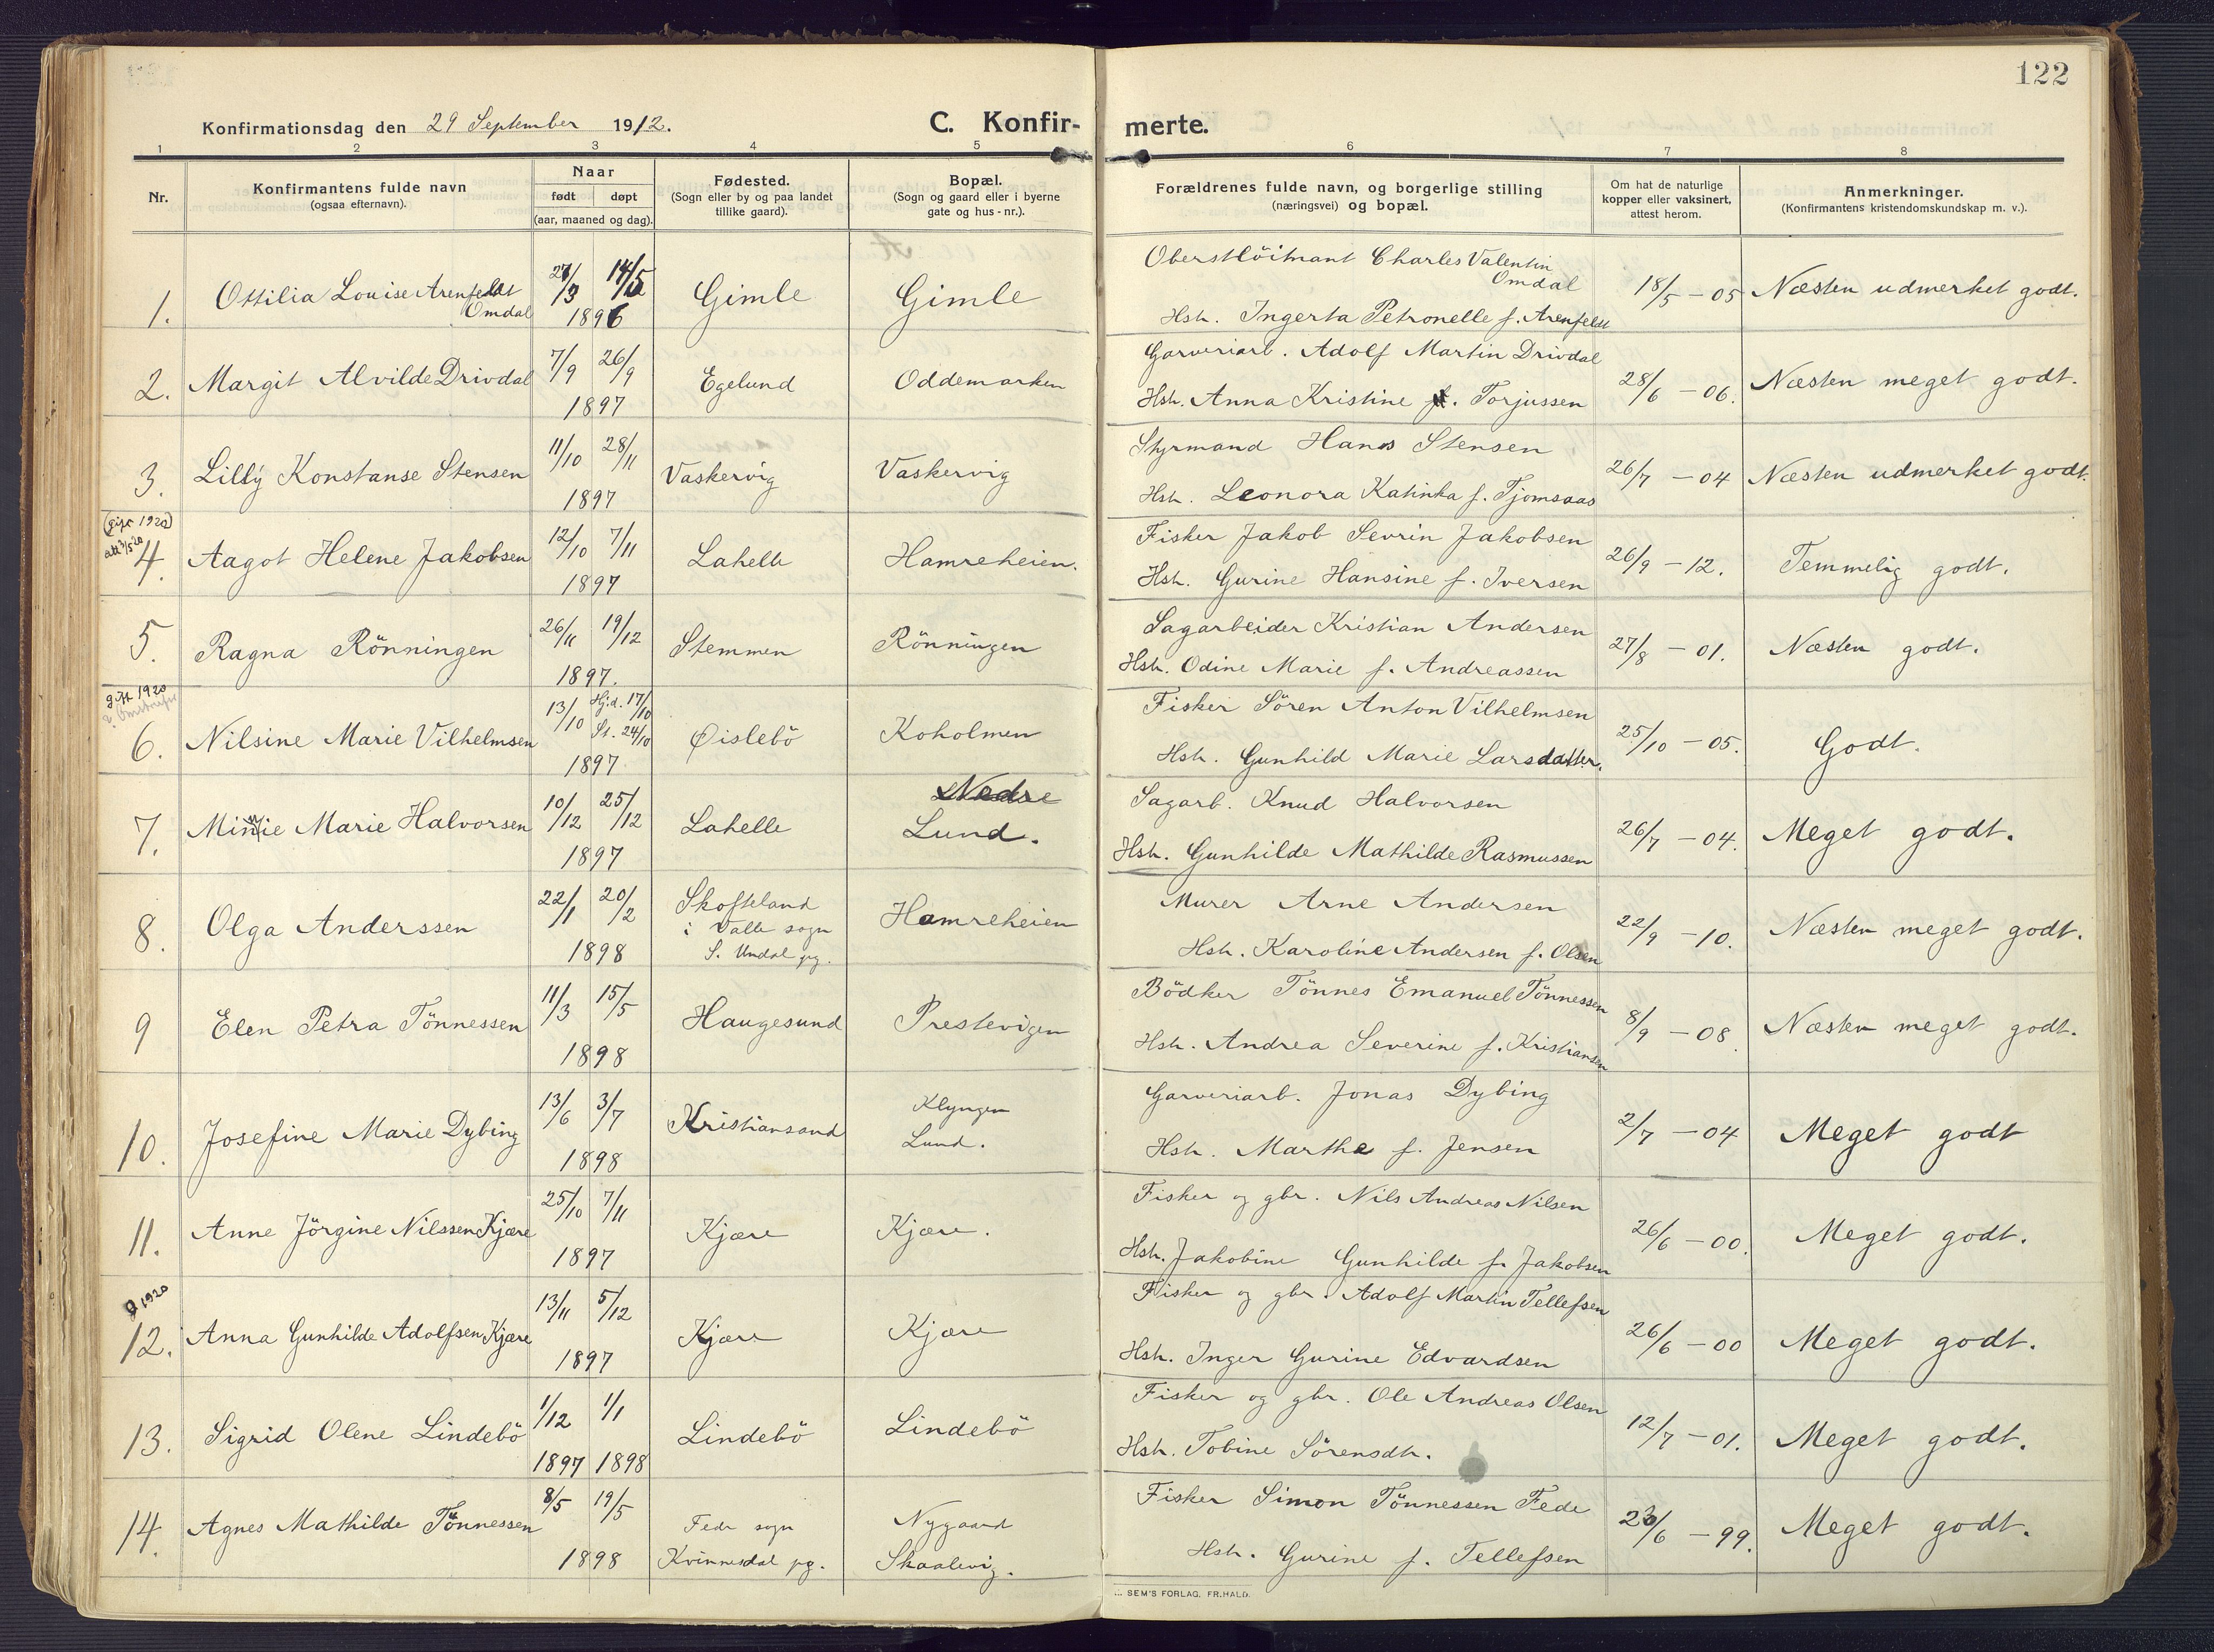 122
Konfirmationsdag den 29 September 1912. C. Konfir- merte.
1 2 3 4 5 6 7 8
Nr.
Konfirmantens fulde navn
(ogsaa efternavn).
Naar
født døpt
(aar, maaned og dag).
Fødested.
(Sogn eller by og paa landet
tillike gaard).
Bopæl.
(Sogn og gaard eller i byerne
gate og hus-nr.).
Forældrenes fulde navn, og borgerlige stilling
(næringsvei) og bopæl.
Om hat de naturlige
kopper eller vaksinert,
attest herom.
Anmerkninger.
(Konfirmantens kristendomskundskap m. v.).
1. Ottilia Louise Arenfeldt
Omdal
27/3 14/5
1896
Gimle
Gimle
Oberstlöitnant Charles Valentin
Omdal
Hstr. Ingerta Petronelle f. Arenfeldt
18/5 - 05
Næsten udmerket godt.
2. Margit Alvilde Drivdal
7/9 26/9
1897
Egelund
Oddemarken
Garveriarb. Adolf Martin Drivdal
Hstr. Anna Kristine f. Torjussen
28/6 - 06.
Næsten meget godt.
3. Lilly Konstanse Stensen
11/10 28/11
1897
Vaskervig
Vaskervig
Styrmand Hans Stensen
Hstr. Leonora Katinka f. Tjomsaas
26/7 - 04
Næsten udmerket godt.
(gift 1920)
att 3/5 20
4. Aagot Helene Jakobsen
12/10 7/11
1897
Lahelle
Hamreheien.
Fisker Jakob Sevrin Jakobsen
Hstr. Gurine Hansine f. Iversen
26/9 - 12.
Temmelig godt.
5. Ragna Rönningen
26/11 19/12
1897.
Stemmen
Rönningen
Sagarbeider Kristian Andersen
Hstr. Odine Marie f. Andreassen
27/8 - 01.
Næsten godt.
gift 1920
6. Nilsine Marie Vilhelmsen
13/10 Hj.d. 17/10
St. 24/10
1897
Øislebö
Koholmen
Fisker Sören Anton Vilhelmsen
Hstr. Gunhild Marie Larsdatter.
25/10 - 05.
Godt.
7. Minnie Marie Halvorsen
10/12 25/12
1897
Lahelle
Nedre
Lund.
Sagarb. Knud Halvorsen
Hstr. Gunhilde Mathilde Rasmussen
26/7 - 04.
Meget godt.
8. Olga Anderssen
22/1 20/2
1898
Skofteland
i Valle sogn
S. Undal pg.
Hamreheien
Murer Arne Andersen
Hstr. Karoline Andersen f. Olsen
22/9 - 10.
Næsten meget godt.
9 Elen Petra Tönnessen
11/3 15/5
1898
Haugesund
Prestevigen
Bödker Tönnes Emanuel Tönnessen
Hstr. Andrea Severine f. Kristiansen
8/9 - 08.
Næsten meget godt.
10. Josefine Marie Dybing
13/6 3/7
1898
Kristianssand
Klyngen
Lund.
Garveriarb. Jonas Dybing
Hstr. Marthe f. Jensen
2/7 - 04
Meget godt
11. Anne Jörgine Nilssen Kjære
25/10 7/11
1897
Kjære
Kjære.
Fisker og gbr. Nils Andreas Nilsen
Hstr. Jakobine Gunhilde f. Jakobsen
26/6 - 00.
Meget godt.
g 1920
12. Anna Gunhilde Adolfsen Kjære
13/11 5/12
1897
Kjære
Kjære
Fisker og gbr. Adolf Martin Tellefsen
Hstr. Inger Gurine Edvardsen
26/6 - 00
Meget godt.
13. Sigrid Olene Lindebö
1/12 1/1
1897 1898
Lindebö
Lindebö
Fisker og gbr. Ole Andreas Olsen
Hstr. Tobine Sörensdtr.
12/7 - 01.
Meget godt.
14. Agnes Mathilde Tönnessen
8/5 19/5
1898
Fede sogn
Kvinnesdal pg.
Nygaard
Skaalevig.
Fisker Simon Tönnessen Fede
Hstr. Gurine f. Tellefsen
23/6 - 99.
Meget godt.
SEM'S FORLAG, FR.HALD.